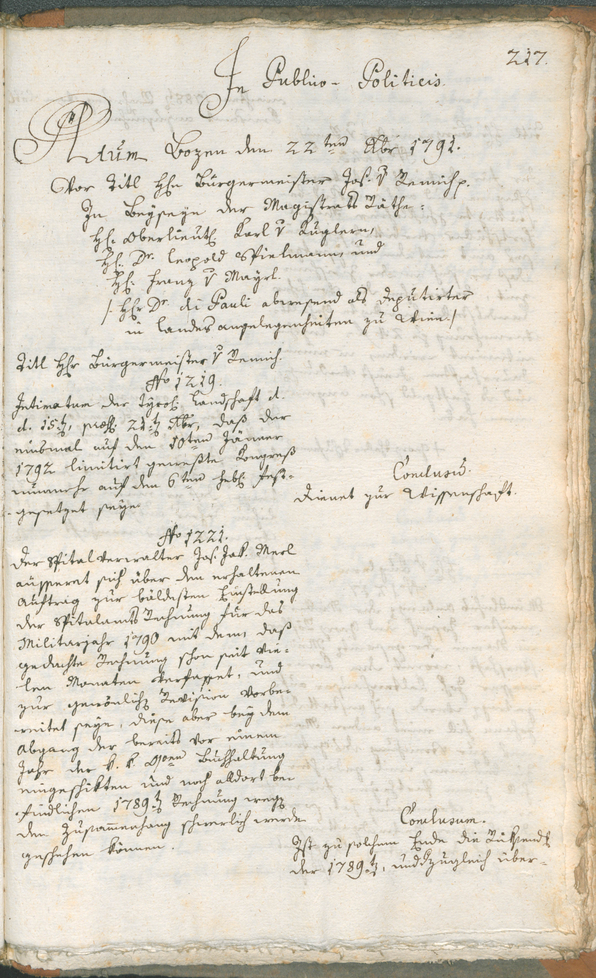 217.
In Publico-Politicis.
Actum Bozen den 22ten Xbr 1791.
Vor Titl Hhn Bürgermeister Jos. v Remich p.
In Beyseyn der Magistrats Räthe:
Hh. Oberlieut. Karl v Kuglern,
Hh. Dr. Leopold Spielmann, und
Hh. Franz v Mayrl.
/: Hhr Dr. di Pauli abwesend als deputirter
in Landes angelegenheiten zu Wien :/
Titl Hhr Bürgermeister v Remich.
No 1219.
Intimatum der Tyrol. Landschaft d.
d. 15t, pres. 21t Xbr, daß der
einsmal auf den 10ten Jänner
1792 limitirt geweßte Kongreß
nunmehr auf den 6ten Febr. fest-
gesetzet seye.
Conclusum.
dienet zur Wissenschaft.
No 1221.
Der Spitalverwalter Jos. Jak. Merl
äusseret sich über den erhaltenen
Auftrag zur bäldesten Einstellung
der Spitalamts Raitung für das
Militarjahr 1790 mit deme, daß
gedachte Rechnung schon seit vie-
len Monaten verfasset, und
zur Revision vorbe-
reitet seye, diese aber bey dem
Abgang der bereits vor einem
Jahr der k. k. Buchhaltung
eingeschikten und noch alldort be-
findlichen 1789t Rechnung wegen
dem Zusammenhang schwerlich werde
geschehen können.
Conclusum.
Ist zu solchem Ende die
der 1789t, und zugleich über-